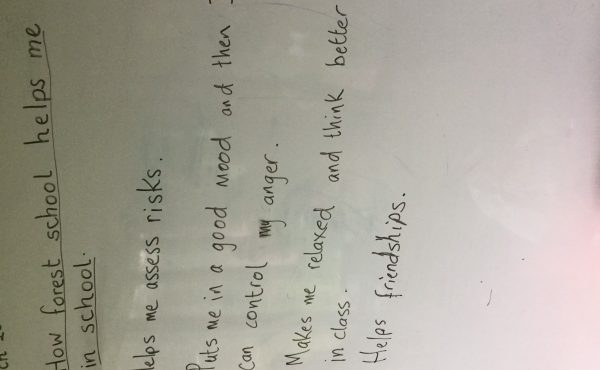 How forest school helps me
in school.
Helps me assess risks.
Puts me in a good mood and then I
can control my anger.
Makes me relaxed and think better
in class.
Helps friendships.